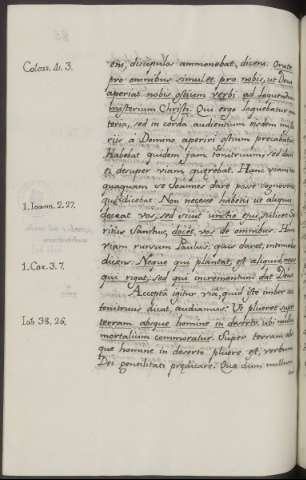 Coloss. 4. 3.
ens, discipulos ammonebat, dicens: Orate
pro omnibus simul et pro nobis, ut Deus
aperiat nobis ostium verbi ad loquendum
mysterium Christi. Qui ergo loquebatur
teria, sed in corda audientium eisdem
riis a Domino aperiri ostium precabatur
Habebat quidem jam tonitruum, sed
ti desuper viam querebat. Hanc viam
quaquam se Joannes dare posse
qui dicebat: Non necesse habetis ut aliquis
1. Ioann. 2. 27.
doceat vos, sed sicut unctio ejus, scilicet
ritus Sanctus, docet vos de omnibus. Hanc
viam rursum Paulus, quis daret, intimavit
dicens: Neque qui plantat, est aliquid, neque
1. Cor. 3. 7.
qui rigat, sed qui incrementum dat Deus
Accepta igitur via, quid iste imber
tonitruus agat, audiamus: Ut plueret super
Iob. 38. 26.
terram absque homine in deserto, ubi nullus
mortalium commoratur. Super terram abs
que homine in deserto pluere est, verbum
Dei gentilitati predicare. Quae dum nullum